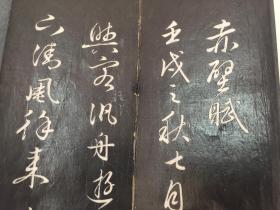 赤壁賦
壬戌之秋七月
與客汎舟遊
下清風徐来